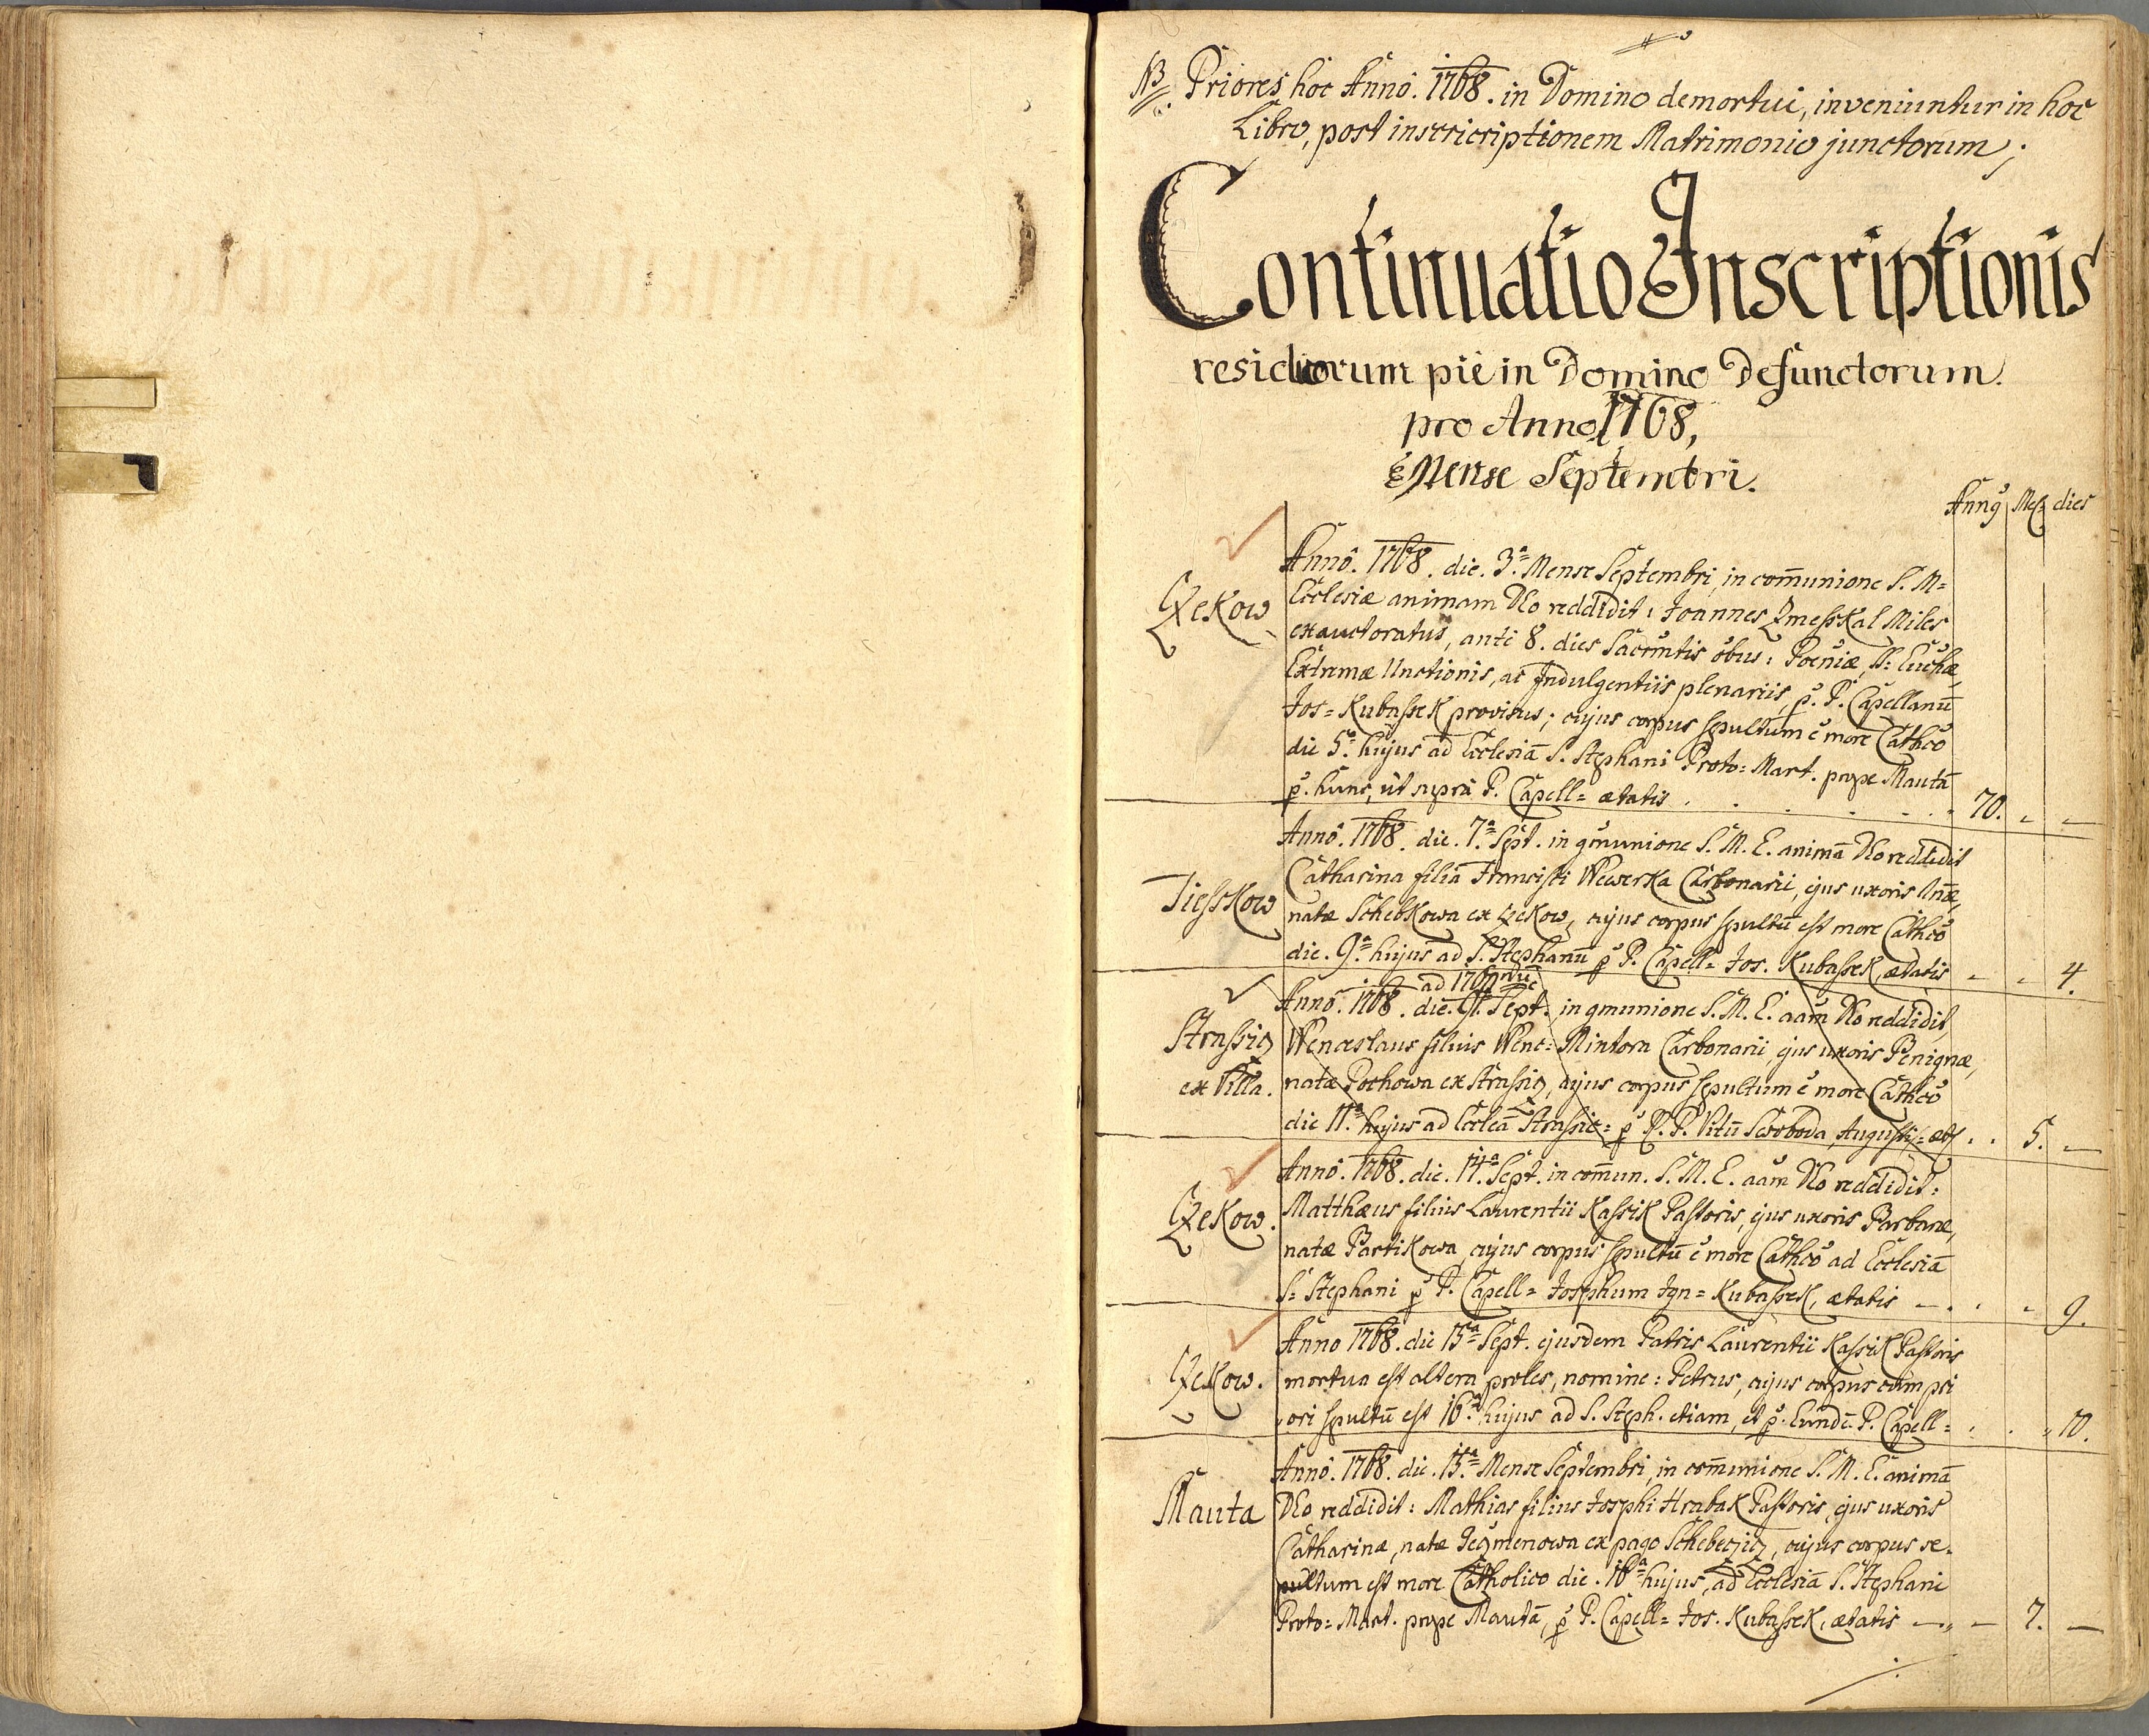 NB Priores hoc Anno. 1768. in Domino demortui, inveniuntur in hoc
Libro, post inscricriptionem Matrimonio junctorum;
Continuatio Inscriptionis
residuorum piè in Domino Defunctorum.
pro Anno 1768,
è Mense Septembri.
Annꝰ Mes: dies
Czekow
Annô. 1768. die. 3.ª Mense Septembri, in com̄unione S. M=
Ecclesiæ animam Deo reddidit: Joannes Zmesskal Miles
exauctoratus, ante 8. dies Sacm̄tis ōbus: Poeniæ, SS: Euchæ,
Extremæ Unctionis, ac Indulgentiis plenariis, p. P. Capellanū
Jos= Kubassek provisus; cujus corpus sepultum ē more Cathco
die 5.ª hujus ad Ecclesiā S. Stephani Proto= Mart. prope Mautā
p. hunc, ut supra P. Capell= ætatis . . . . 70. - -
Tiesskow
Annô. 1768. die. 7.ª Sept. in com̄unione S. M. E. animā Deo reddidit
Catharina filia Francisci Wewerka Carbonarii, ejus uxoris Annæ,
natæ Schebkowa ex Czekow, cujus corpus sepultū est more Cathco
die. 9.ª hujus ad S. Stephanū p P. Capell= Jos. Kubassek, ætatis - - 4.
Strassicz
ex Villa.
Annô. 1768. die. 9. Sept. in com̄unione S. M. E. aām Deo reddidit,
Wenceslaus filius Wenc= Mintora Carbonarii ejus uxoris Benignæ,
natæ Pochowa ex Strassicz, cujus corpus sepultum ē more Cathco
die 11.ª hujus ad Ecclēā Strassic= p R. P. Vitū Swoboda, Augusti= æts . . 5. -
Czekow.
Annô. 1768. die. 14.ª Sept. in com̄un. S. M. E. aām Deo reddidit:
Matthæus filius Laurentii Kassik Pastoris, ejus uxoris Barbaræ,
natæ Bartikowa, cujus corpus sepultū ē more Cathco ad Ecclesiā
S= Stephani p P. Capell= Josephum Ign= Kubassek, ætatis - . . - 9.
Czekow.
Anno 1768. die 15.ª Sept. ejusdem Patris Laurentii Kassik Pastoris
mortua est altera proles, nomine: Petrus, cujus corpus cum pri
ori sepultū est 16.ª hujus ad S. Steph. etiam, et p. Eundē. P. Capell= . . - 10.
Mauta
Annô. 1768. die. 15.ª Mense Septembri, in com̄unione S. M. E. animā
Deo reddidit: Mathias filius Josephi Hrabak Pastoris, ejus uxoris
Catharinæ, natæ Jeczmenowa ex pago Schebeczicz, cujus corpus se-
pultum est more Catholico die. 16.ª hujus, ad Ecclesiā S. Stephani
Proto= Mart. prope Mautā, p P. Capell= Jos. Kubassek, ætatis - - 7. -